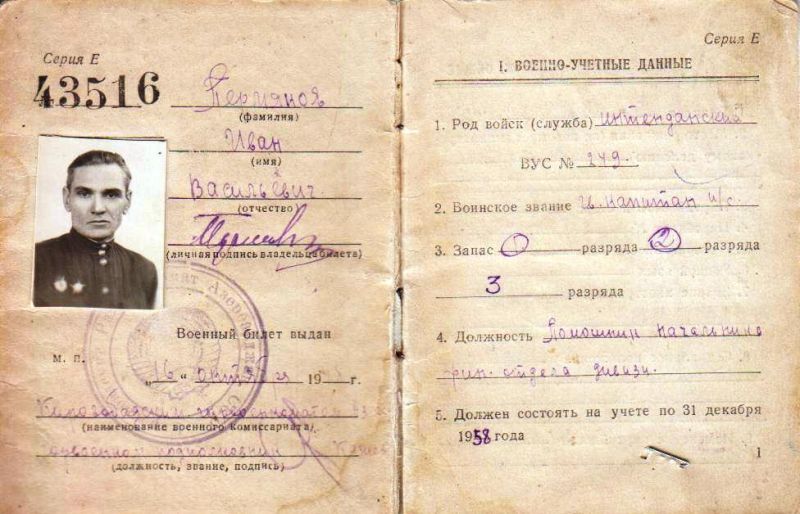 Серия Е
43516
Пермянов
(фамилия)
Иван
(имя)
Васильевич
(отчество)
(личная подпись владельца билета)
Военный билет выдан
м. п.
„16“ октября 19 г.
(наименование военного комиссариата)
подполковник
(должность, звание, подпись)
Серия Е
I. ВОЕННО-УЧЕТНЫЕ ДАННЫЕ
1. Род войск (служба) интенданский
ВУС № 279.
2. Воинское звание гв. капитан и/с.
3. Запас 1 разряда 2 разряда
3 разряда
4. Должность Помошник началника
фин. отдела дивизи.
5. Должен состоять на учете по 31 декабря
1958 года
1